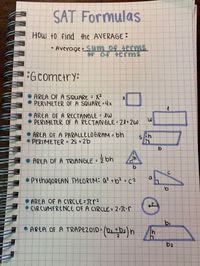 SAT Formulas
HOW TO FIND THE AVERAGE:
• Average = sum of terms
# of terms
:Geometry:
• AREA OF A SQUARE = x²
• PERIMETER OF A SQUARE = 4x
x
• AREA OF A RECTANGLE = lw
• PERIMETER OF A RECTANGLE = 2l + 2w
l
w
• AREA OF A PARALLELOGRAM = bh
• PERIMETER = 2s + 2b
s
h
b
• AREA OF A TRIANGLE = ½ bh
h
b
• PYTHAGOREAN THEOREM: a² + b² = c²
a
c
b
• AREA OF A CIRCLE = πr²
• CIRCUMFERENCE OF A CIRCLE = 2·π·r
r
• AREA OF A TRAPEZOID = (b₁ + b₂ / 2) h
b₁
h
b₂